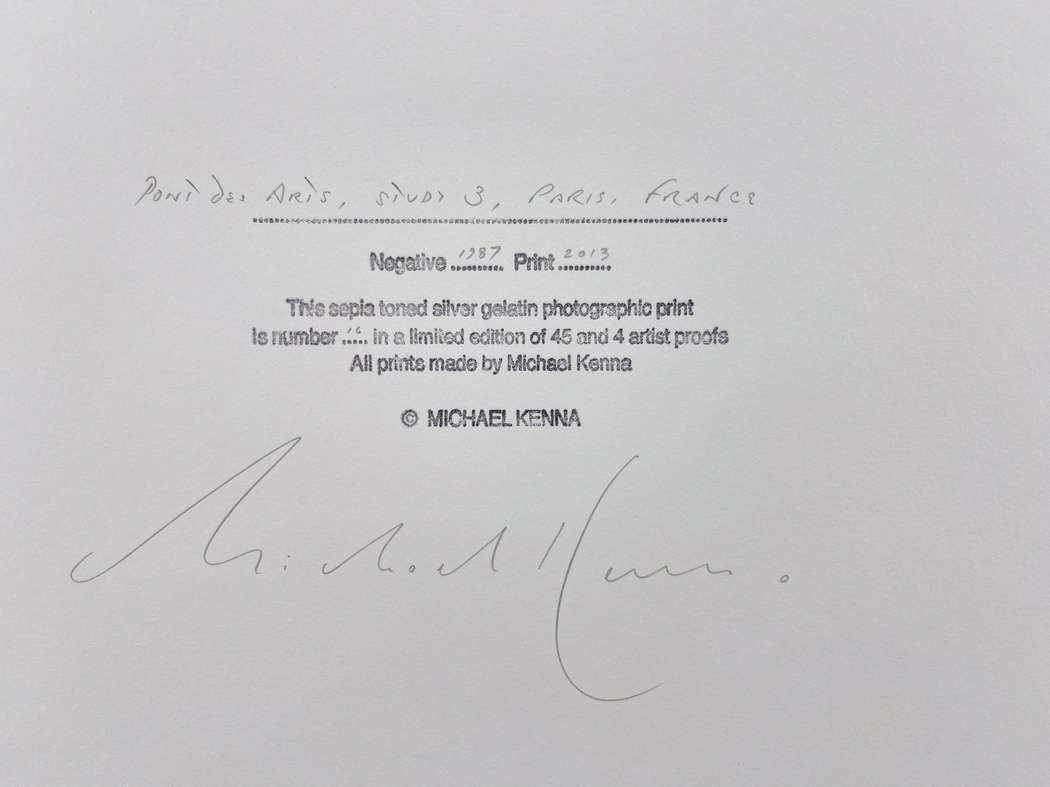 Pont des Arts, Study 3, Paris, France
Negative 1987 Print 2013
This sepia toned silver gelatin photographic print
is number ..... in a limited edition of 45 and 4 artist proofs
All prints made by Michael Kenna
© MICHAEL KENNA
Michael Kenna.